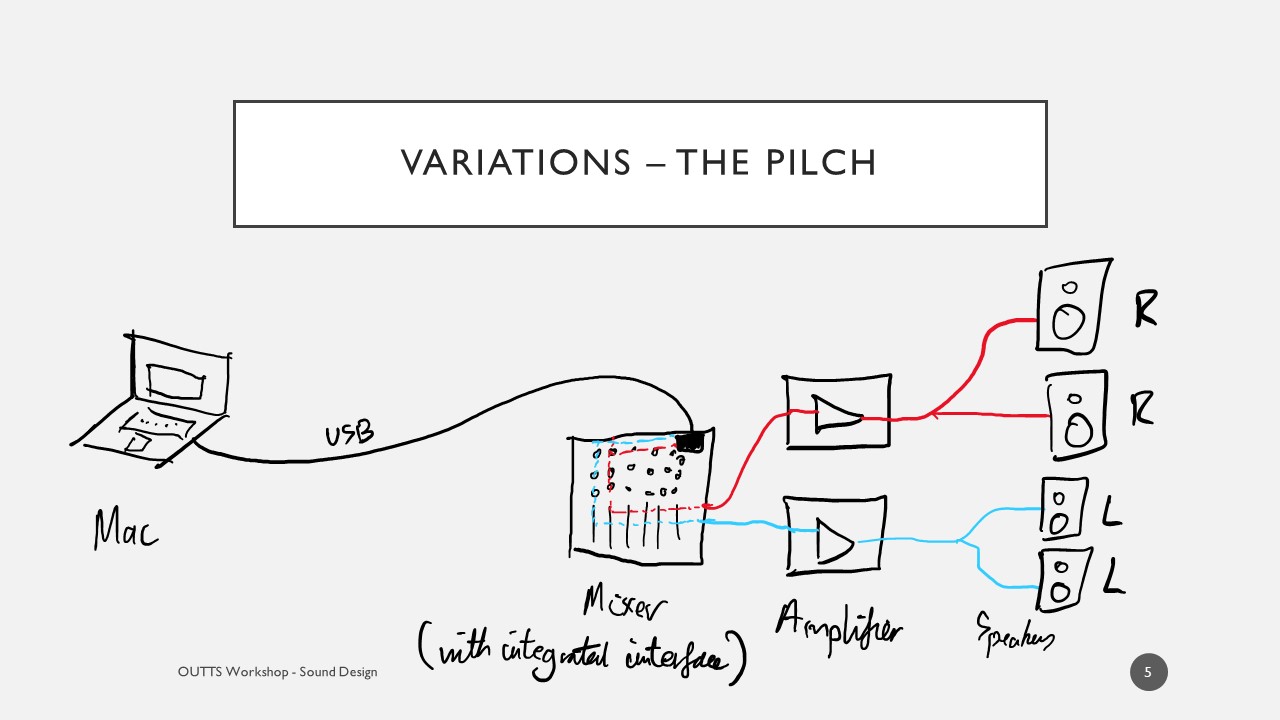 VARIATIONS – THE PILCH
R
R
USB
L
L
Mac
Mixer
(with integrated interface)
Amplifier
Speakers
OUTTS Workshop - Sound Design
5